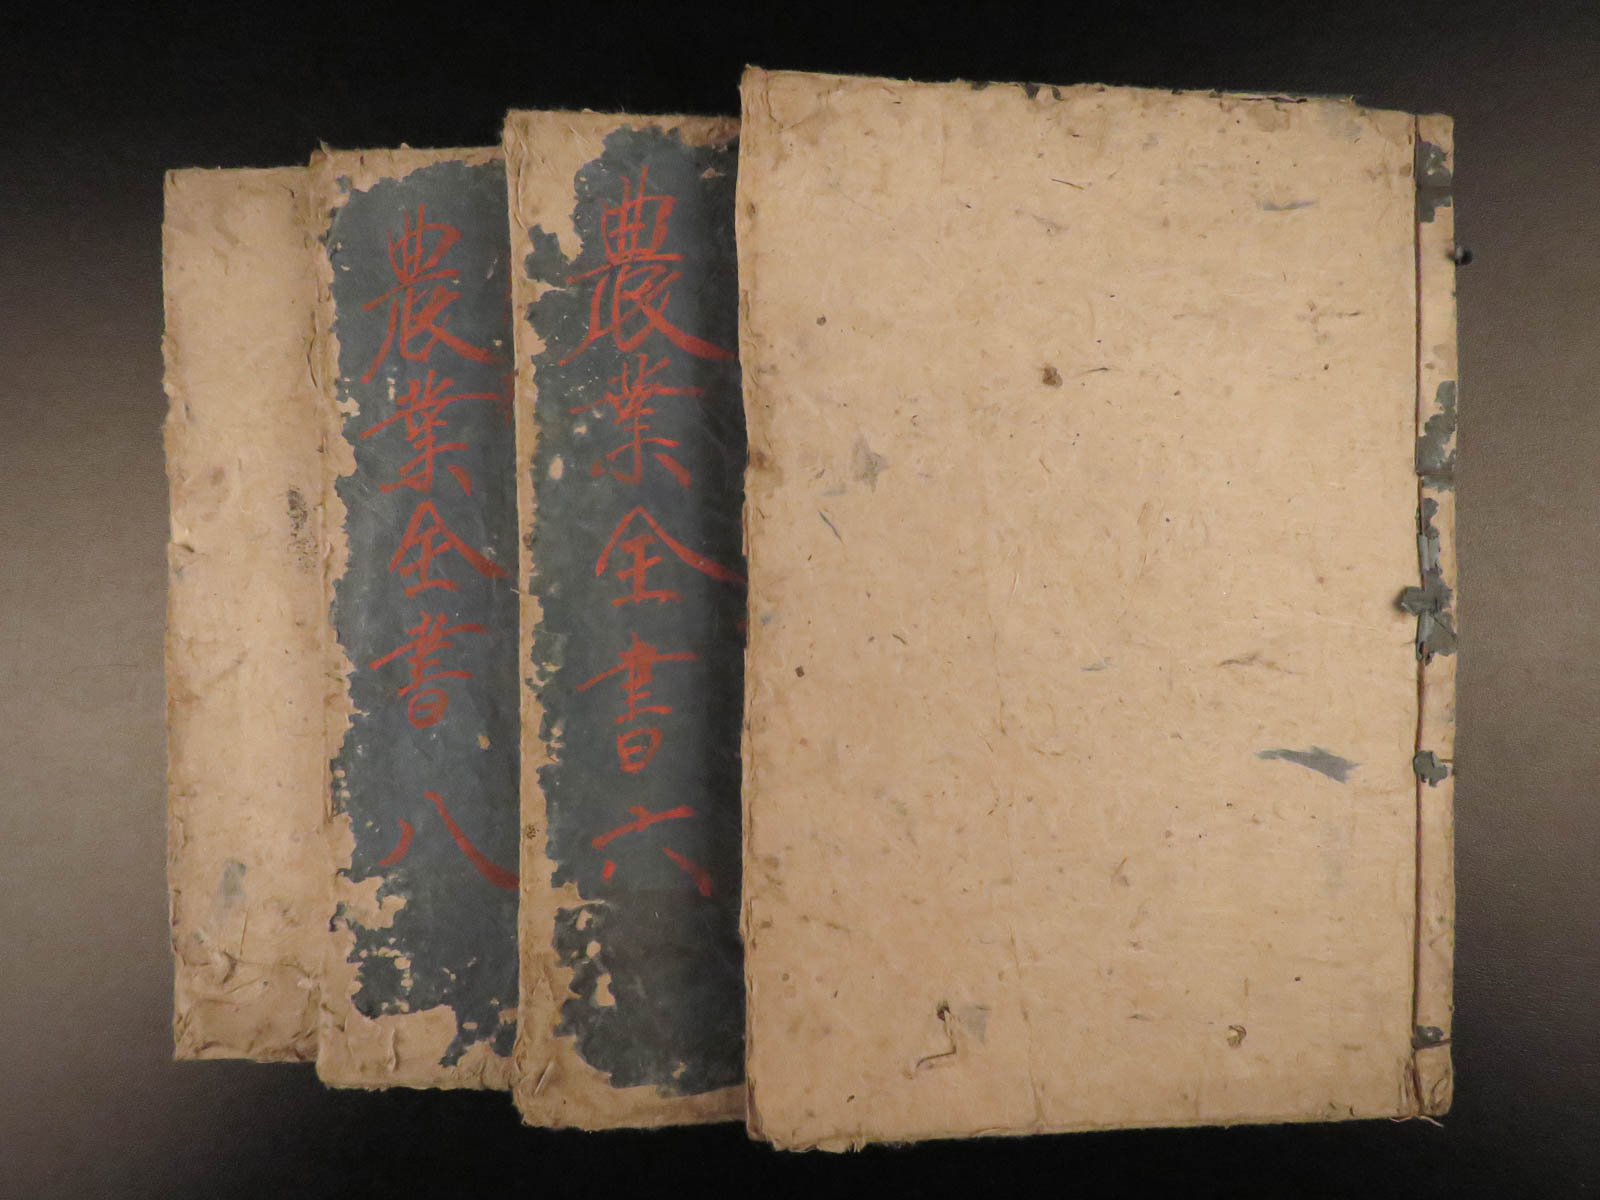 農業全書 六
農業全書 八